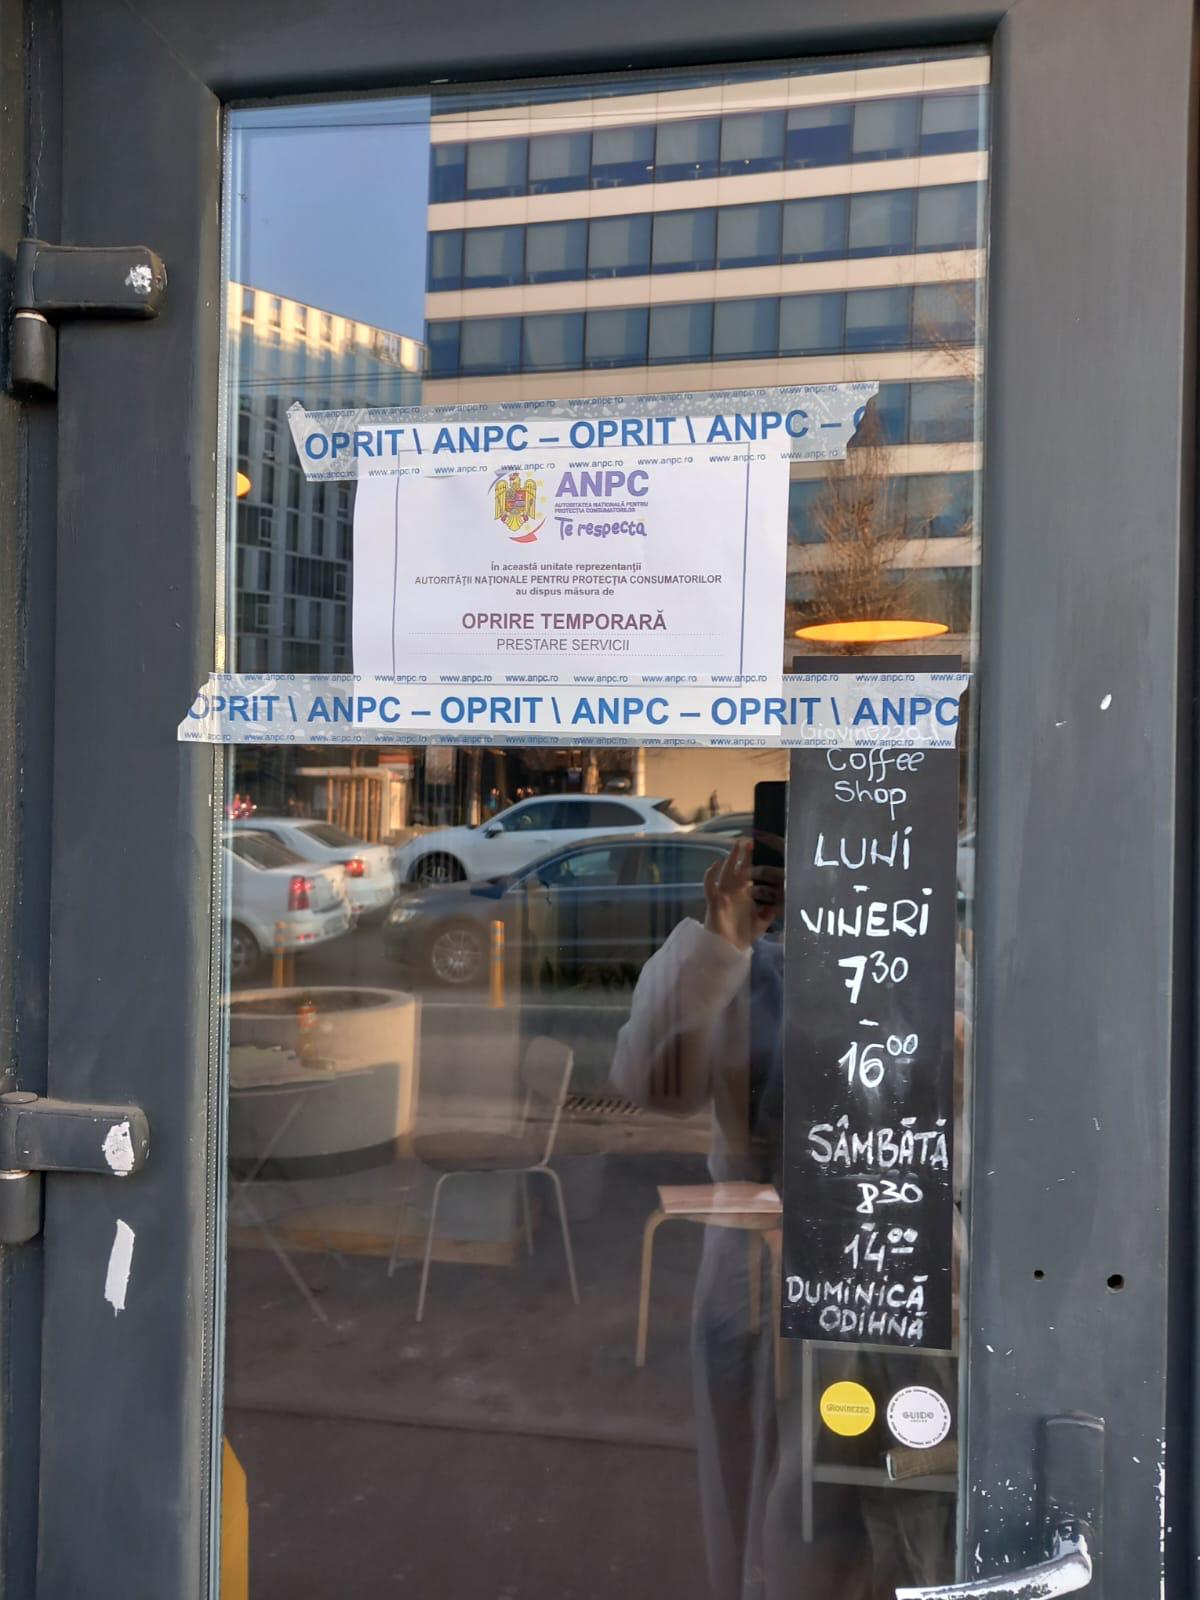 www.anpc.ro www.anpc.ro www.anpc.ro www.anpc.ro www.anpc.ro www.anpc.ro www.anpc.ro www.anpc.ro
OPRIT \ ANPC – OPRIT \ ANPC –
www.anpc.ro www.anpc.ro www.anpc.ro www.anpc.ro www.anpc.ro www.anpc.ro www.anpc.ro www.anpc.ro
ANPC
AUTORITATEA NAȚIONALĂ PENTRU
PROTECȚIA CONSUMATORILOR
Te respectă
În această unitate reprezentanții
AUTORITĂȚII NAȚIONALE PENTRU PROTECȚIA CONSUMATORILOR
au dispus măsura de
OPRIRE TEMPORARĂ
PRESTARE SERVICII
www.anpc.ro www.anpc.ro www.anpc.ro www.anpc.ro www.anpc.ro www.anpc.ro www.anpc.ro www.anpc.ro www.anpc.ro www.anpc.ro
OPRIT \ ANPC – OPRIT \ ANPC – OPRIT \ ANPC
www.anpc.ro www.anpc.ro www.anpc.ro www.anpc.ro www.anpc.ro www.anpc.ro www.anpc.ro www.anpc.ro www.anpc.ro www.anpc.ro
Giovinezza
Coffee
Shop
LUNI
-
VINERI
7³⁰
-
16⁰⁰
SÂMBĂTĂ
8³⁰
-
14⁰⁰
DUMINICĂ
ODIHNĂ
Giovinezza
GUIDO